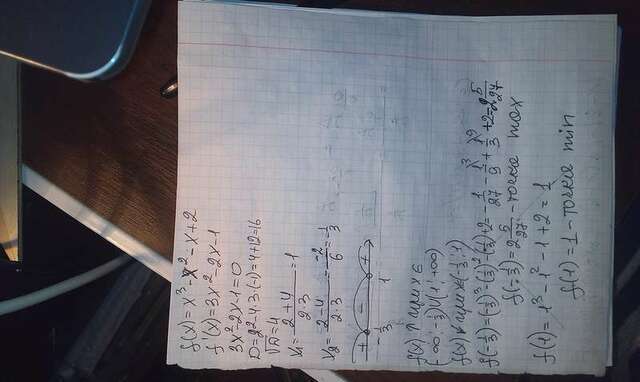 f(x) = x³ - x² - x + 2
f'(x) = 3x² - 2x - 1
3x² - 2x - 1 = 0
D = 2² - 4·3·(-1) = 4 + 12 = 16
√D = 4
x₁ = (2+4)/(2·3) = 1
x₂ = (2-4)/(2·3) = -2/6 = -1/3
+ - +
-1/3 1
f(x) ↑ при x ∈
(-∞; -1/3) ∪ (1; +∞)
f(x) ↓ при x ∈ (-1/3; 1)
f(-1/3) = (-1/3)³ - (-1/3)² - (-1/3) + 2 = -1/27 - 1/9 + 1/3 + 2 = 2 5/27
f(-1/3) = 2 5/27 - точка max
f(1) = 1³ - 1² - 1 + 2 = 1
f(1) = 1 - точка min